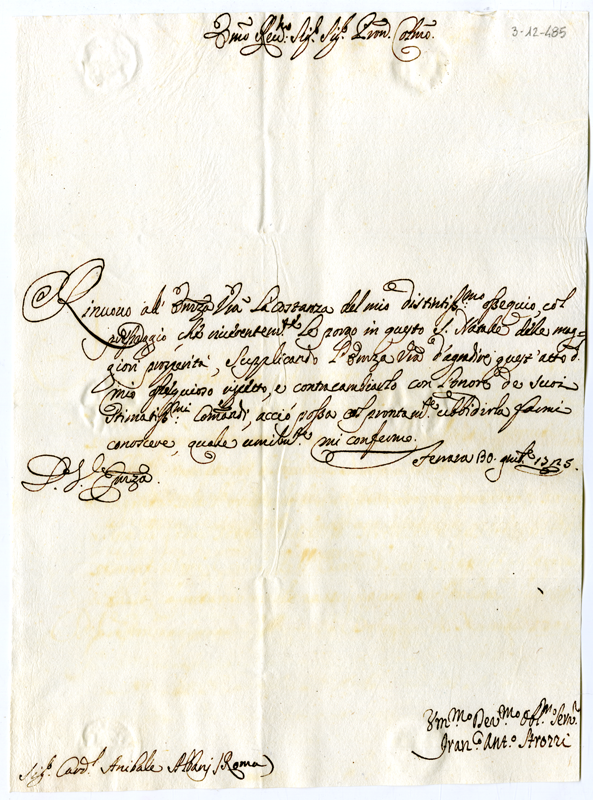 Emo Reu.mo Sig.r Sig.r Pron. Colmo.
3-12-485
Rinuouo all' Emza Vra La costanza del mio distintiss.mo ossequio, col
presaggio, che riuerentem.te Le porgo in questo S. Natale delle mag=
giori prosperità, Supplicando L'Emza Vra d'agradire quest'atto d.
mio ossequioso rispetto, e contracambiarlo con L'onore de suoi
Stimatiss.mi Comandi, acciò possa col pronta.te ubbidirla farmi
conoscere, quale umilm.te mi confermo.
Ferrara 30.
D. V. Emza.
Umo Deu.mo Obl.mo Seru.
Fran.co Ant.o
Sig.r Card.l Anibale Albani (Roma)